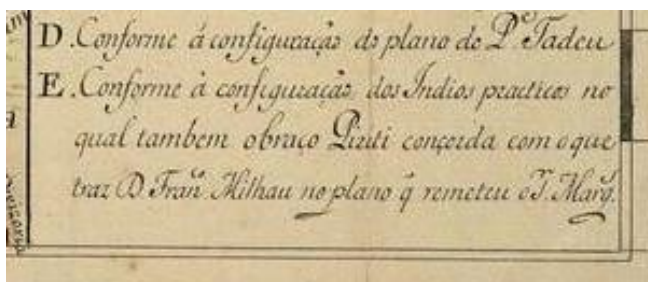 D. Conforme á configuração do plano do P.e Tadeu
E. Conforme á configuração dos Indios practicos no
qual tambem obraço Piriti conçorda com o que
traz D. Fran. Milhau no plano q̃ remeteu o S. Marq.